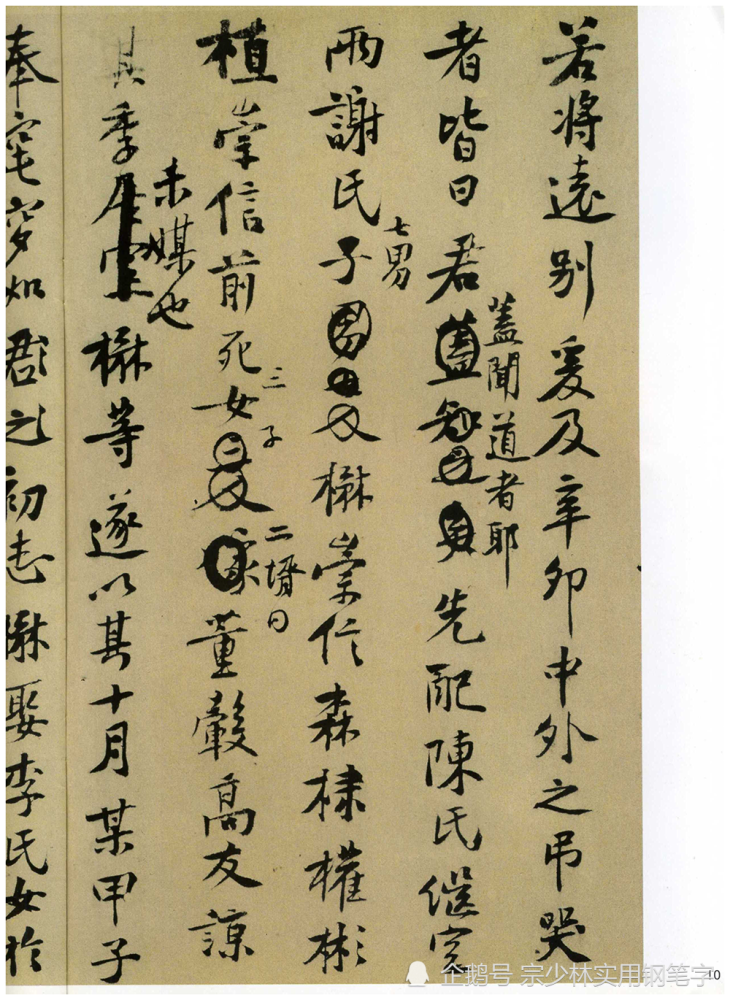 若將遠別爰及辛卯中外之弔哭
者皆曰君先配陳氏繼室
蓋聞道者耶
兩謝氏子楙崇信森棣權彬
七男
植崇信前死女董轂高友諒
三子
二壻曰
其季楙等遂以其十月某甲子
未媒也
奉窀穸如君之初志楙娶李氏女於
企鹅号 宗少林实用钢笔字
10